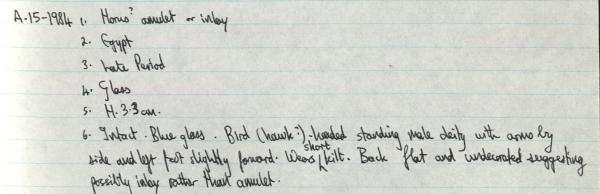 A-15-1984 1. Horus? amulet or inlay
2. Egypt
3. Late Period
4. Glass
5. H. 3.3 cm.
6. Intact. Blue glass. Bird (hawk?)-headed standing male deity with arms by
side and left foot slightly forward. Wears short kilt. Back flat and undecorated suggesting
possibly inlay rather than amulet.